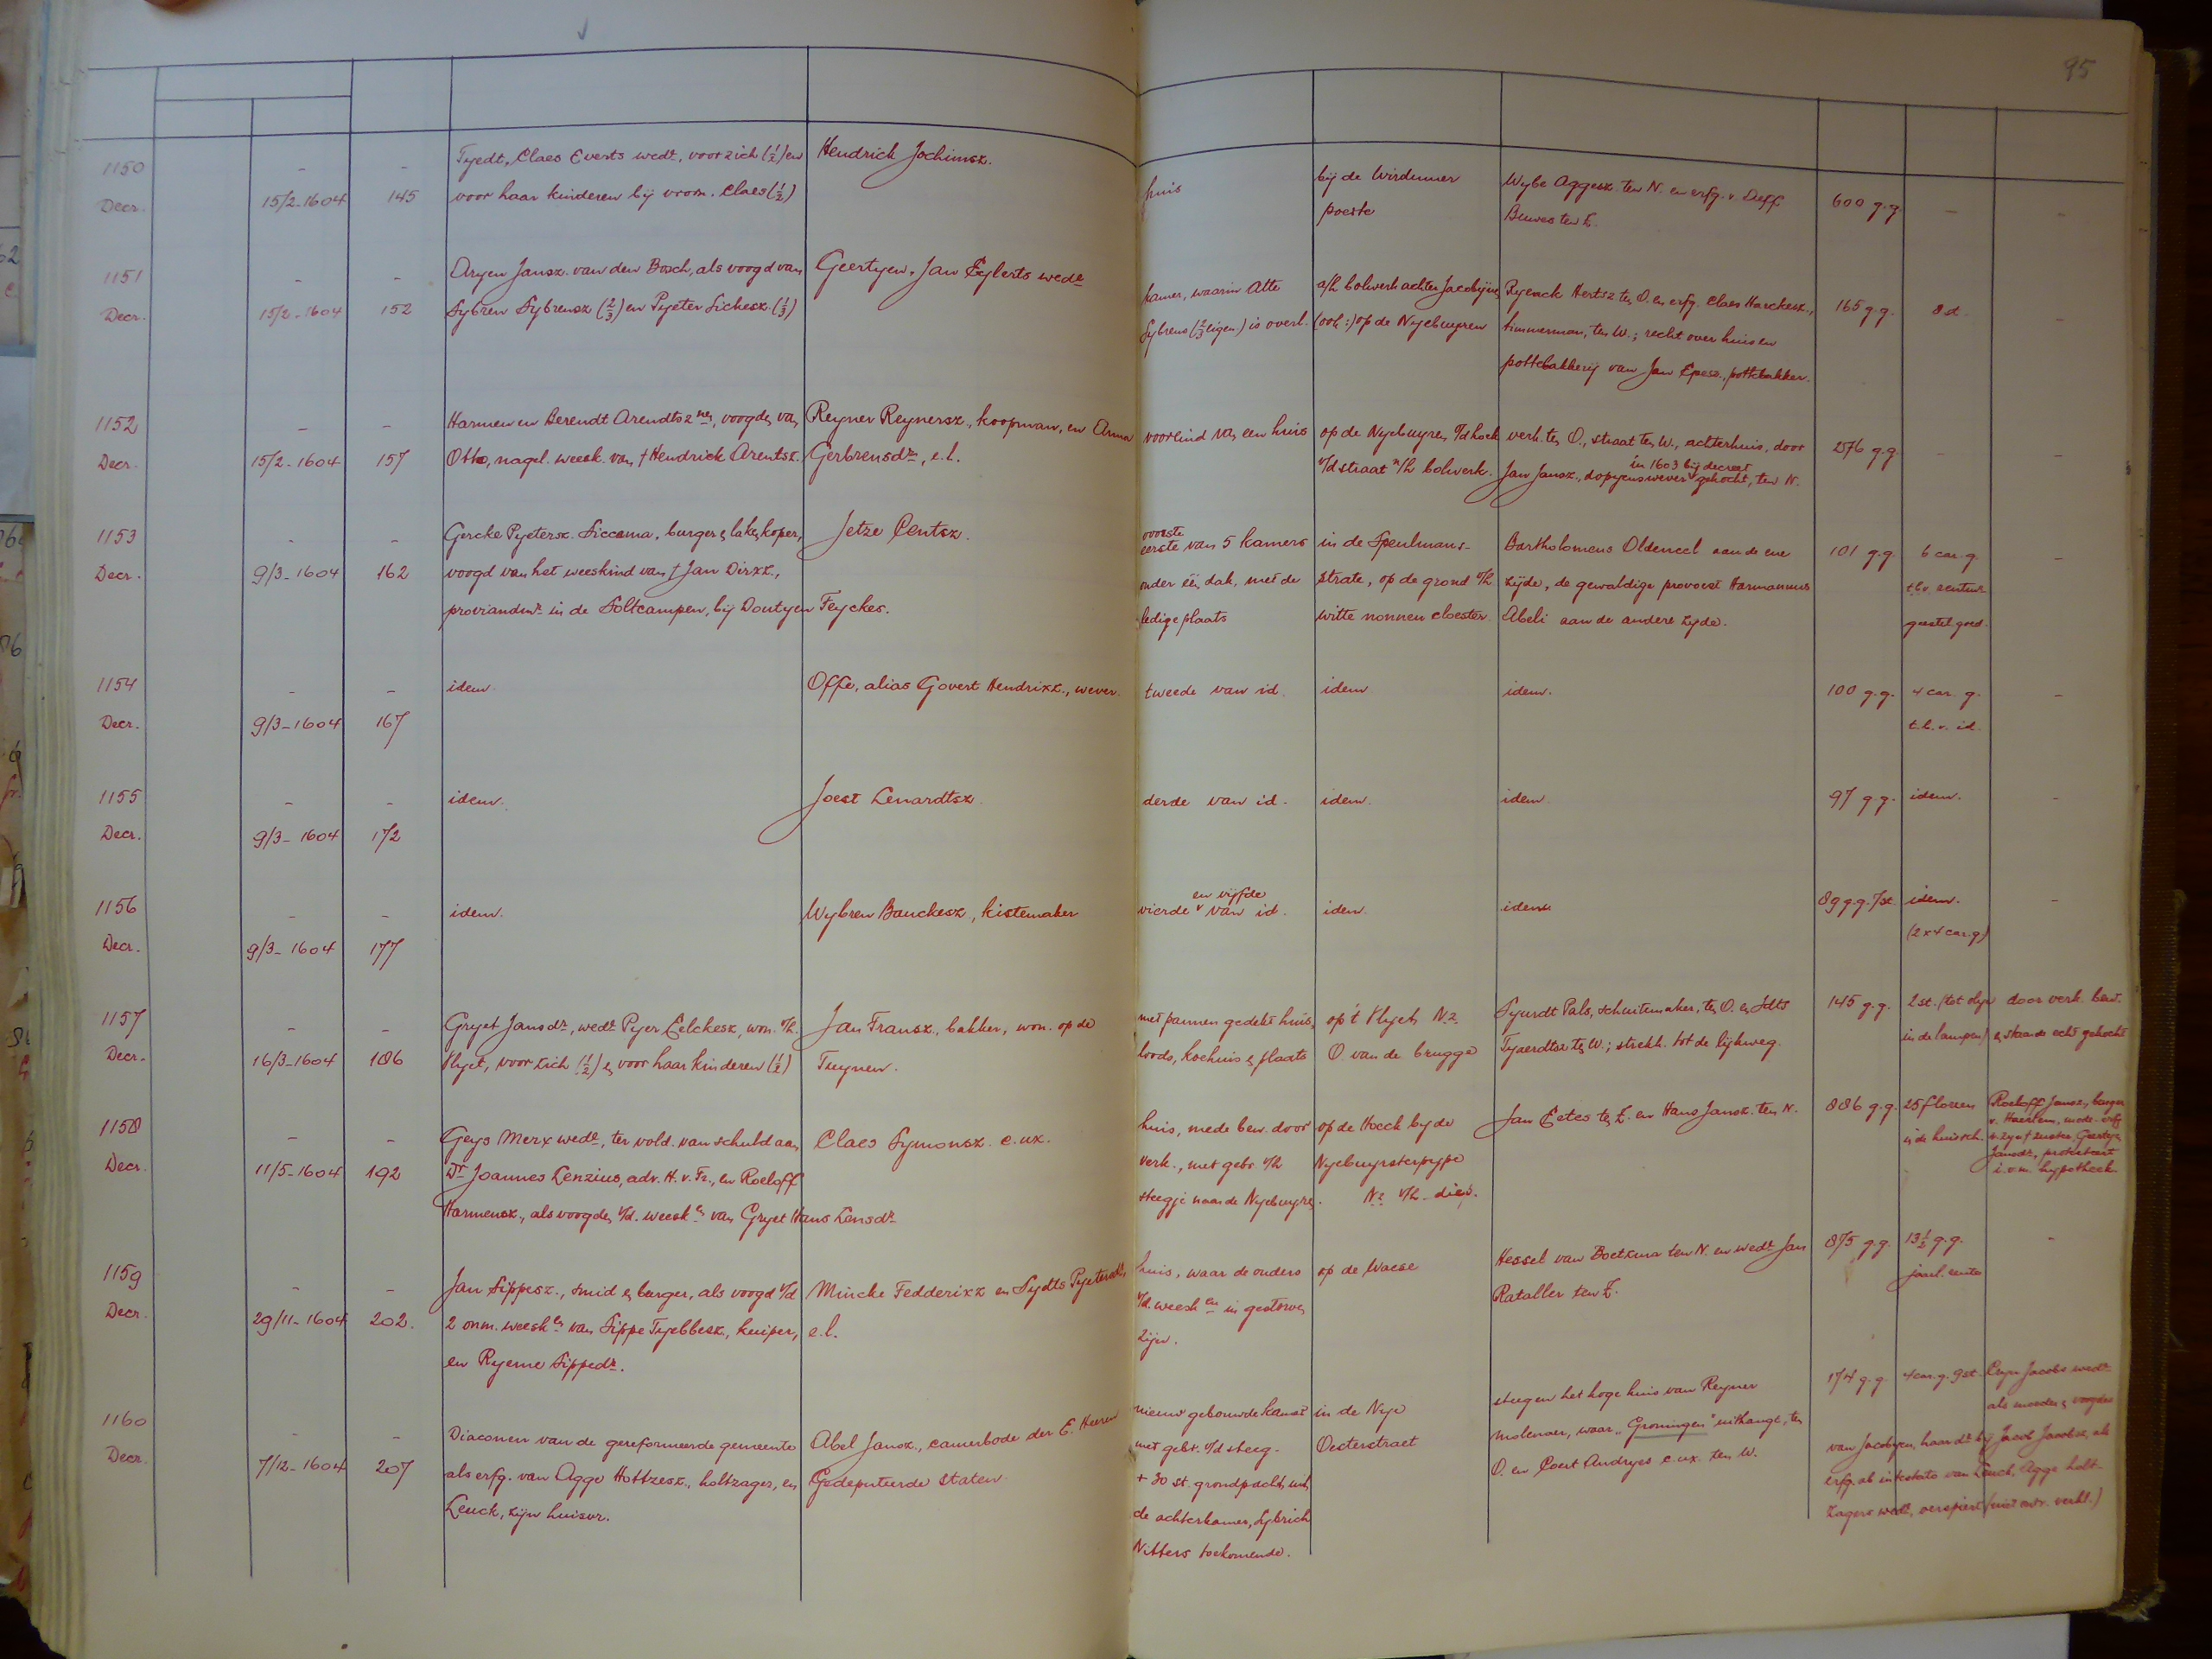 95
1150 - - Tyedt, Claes Everts wedr, voor zich (1/2) en Hendrick Jochimsz. huis bij de Wirdumer Wybe Aggesz. ten N. en erfg. v. Deff 600 g.g. - -
Decr. 15/2-1604 145 voor haar kinderen bij voorn. Claes (1/2) poorte Beuwes ten Z.
1151 - - Aryen Jansz. van den Bosch, als voogd van Geertyen, Jan Eylerts wede kamer, waarin Atte a/h bolwerk achter Jacobijnen Ryenck Hertsz ten O. en erfg. Claes Harckesz., 165 g.g. 8 st. -
Decr. 15/2-1604 152 Sybren Sybrensz (2/3) en Pyeter Sickesz. (1/3) Sybrens (2/3 eigen.) is overl. (ook:) op de Nyebuyren timmerman, ten W.; recht over huis en
pottebakkerij van Jan Epesz., pottebakker.
1152 - - Harmen en Berendt Arendtsznen, voogden van Reyner Reynersz., koopman, en Anna vooreind van een huis op de Nyebuyren o/d hoek verk. ten O., straat ten W., achterhuis, door 276 g.g. - -
Decr. 15/2-1604 157 Otto, nagel. weesk. van † Hendrick Arentsz. Gerbrensdr, e.l. v/d straat n/h bolwerk. Jan Jansz., dopyenswever in 1603 bij decreet gekocht, ten N.
1153 - - Gercke Pyetersz. Siccama, burger en lakenkoper, Jetze Centsz. voorste eerste van 5 kamers in de Speulmans- Bartholomeus Oldeneel aan de ene 101 g.g. 6 car. g. -
Decr. 9/3-1604 162 voogd van het weeskind van † Jan Dirxz., onder één dak, met de strate, op de grond v/h zijde, de gewaldige provoest Harmannus t.b.v. rentmr.
proviandmr in de Soltcampen, bij Doutyen Feyckes. ledige plaats witte nonnen cloester Abeli aan de andere zyde. geestel. goed.
1154 - - idem Offe, alias Govert Hendrixz., wever. tweede van id. idem idem. 100 g.g. 4 car. g. -
Decr. 9/3-1604 167 t.b.v. id.
1155 - - idem. Joest Lenardtsz. derde van id. idem. idem. 97 g.g. idem. -
Decr. 9/3-1604 172
1156 - - idem. Wybren Bauckesz, kistemaker vierde en vijfde van id. idem. idem. 89 g.g. 7 st. idem. -
Decr. 9/3-1604 177 (2 x 4 car.g.)
1157 - - Gryet Jansdr, wedr Pyer Eelckesz, won. o/h Jan Fransz., bakker, won. op de met pannen gedekt huis, op 't Vlyet N.z. Syurdt Pals, schuitemaker, ten O. en Idts 145 g.g. 2 st. (tot olye door verk. bew.
Decr. 16/3-1604 186 Vlyet, voor zich (1/2) en voor haar kinderen (1/2) Tuynen. loods, koehuis en plaats O. van de brugge Tyaerdtsz ten W.; strekk. tot de lijkweg. in de lampen) en staande echt gekocht
1158 - - Geys Merx wede, ter vold. van schuld aan Claes Symonsz. c.ux. huis, mede bew. door op de Hoeck by de Jan Eetes ten Z. en Hans Jansz. ten N. 886 g.g. 25 floreen Roeloff Jansz., burger
Decr. 11/5-1604 192 Dr Joannes Lenzius, adv. H. v. Fr., en Roeloff verk., met gebr. v/h Nyebuyrsterpype in de huissch. v. Haerlem, mede-erfg. v. zyn † zuster Geertyen
Harmensz., als voogden v/d. weesken van Gryet Hans Lensdr steegje naar de Nyebuyren. N.z. v/h diep. Jansdr, protesteert i.v.m. hypotheek
1159 - - Jan Sippesz., smid en burger, als voogd v/d Mincke Fedderixz en Sydts Pyetersdr, huis, waar de ouders op de Waese Hessel van Boetzma ten N. en wedr Jan 875 g.g. 13 1/2 g.g. -
Decr. 29/11-1604 202. 2 onm. weesken van Sippe Tyebbesz., kuiper, e.l. v/d. weesken in gestorven Rataller ten Z. jaarl. rente
en Ryeme Sippedr. zijn.
1160 - - Diaconen van de gereformeerde gemeente Abel Jansz., camerbode der E. Heeren nieuw gebouwde kamer in de Nye steegen het hoge huis van Reyner 174 g.g. 4 car. g. 9 st. Cryn Jacobs wedr
Decr. 7/12-1604 207 als erfg. van Agge Hottzesz., holtzager, en Gedeputeerde Staten met gebr. v/d steeg. Oosterstraet molenaer, waar "Groningen" uithangt, ten als moeder en voogdes
Leuck, zijn huisvr. + 30 st. grondpacht uit O. en Coert Andryes c.ux. ten W. van Jacobyen, haar dr bij Jacob Jacobsz, als
de achterkamer, Sybrich erfg. ab intestato van Leuck, Agge holt-
Nitters toekomende. zagers wedr, verspiert (niet ontv. verkl.)